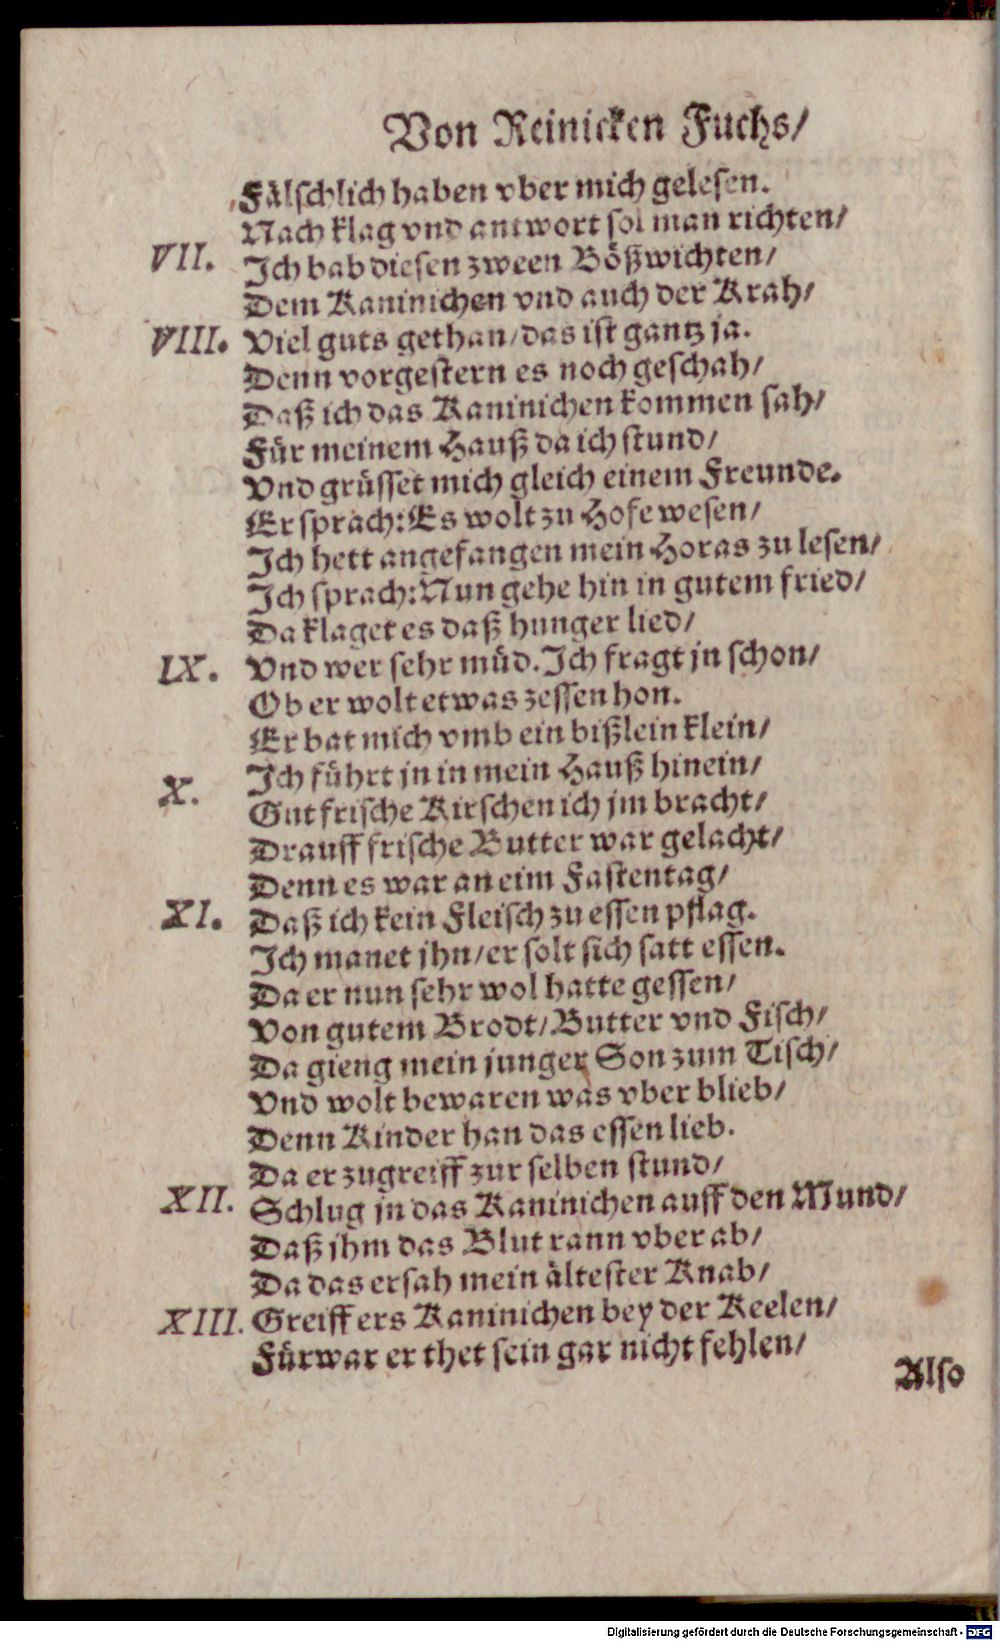 Von Reinicken Fuchs/
Fälschlich haben vber mich gelesen.
Nach klag vnd antwort sol man richten/
VII. Ich bab diesen zween Bößwichten/
Dem Kaninichen vnd auch der Krah/
VIII. Viel guts gethan/das ist gantz ja.
Denn vorgestern es noch geschah/
Daß ich das Kaninichen kommen sah/
Für meinem Hauß da ich stund/
Vnd grüsset mich gleich einem Freunde.
Er sprach: Es wolt zu Hofe wesen/
Ich hett angefangen mein Horas zu lesen/
Ich sprach: Nun gehe hin in gutem fried/
Da klaget es daß hunger lied/
IX. Vnd wer sehr müd. Ich fragt jn schon/
Ob er wolt etwas zessen hon.
Er bat mich vmb ein bißlein klein/
X. Ich führt jn in mein Hauß hinein/
Gut frische Kirschen ich jm bracht/
Drauff frische Butter war gelacht/
Denn es war an eim Fastentag/
XI. Daß ich kein Fleisch zu essen pflag.
Ich manet jhn/er solt sich satt essen.
Da er nun sehr wol hatte gessen/
Von gutem Brodt/Butter vnd Fisch/
Da gieng mein junger Son zum Tisch/
Vnd wolt bewaren was vber blieb/
Denn Kinder han das essen lieb.
Da er zugreiff zur selben stund/
XII. Schlug jn das Kaninichen auff den Mund/
Daß jhm das Blut rann vber ab/
Da das ersah mein ältester Knab/
XIII. Greiff ers Kaninichen bey der Keelen/
Fürwar er thet sein gar nicht fehlen/
Also
Digitalisierung gefördert durch die Deutsche Forschungsgemeinschaft - DFG